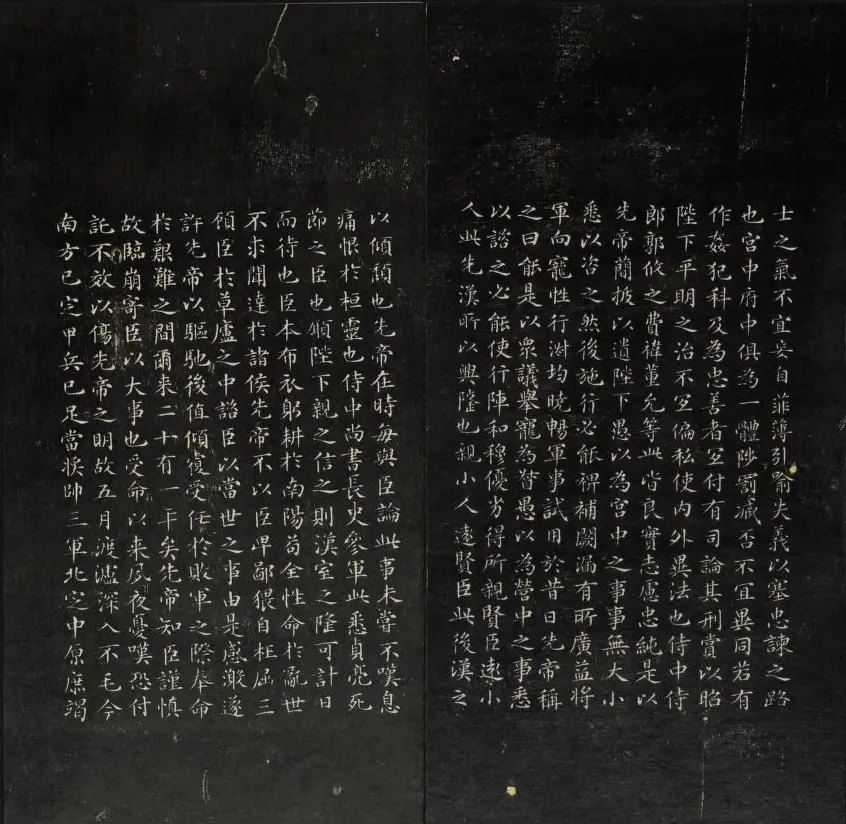 士之氣不宜妄自菲薄引喻失義以塞忠諫之路
也宮中府中俱為一體陟罰臧否不宜異同若有
作姦犯科及為忠善者宜付有司論其刑賞以昭
陛下平明之治不宜偏私使內外異法也侍中侍
郎郭攸之費禕董允等此皆良實志慮忠純是以
先帝簡拔以遺陛下愚以為宮中之事事無大小
悉以咨之然後施行必能裨補闕漏有所廣益將
軍向寵性行淑均曉暢軍事試用於昔日先帝稱
之曰能是以眾議舉寵為督愚以為營中之事悉
以諮之必能使行陣和穆優劣得所親賢臣遠小
人此先漢所以興隆也親小人遠賢臣此後漢之
以傾頹也先帝在時每與臣論此事未嘗不嘆息
痛恨於桓靈也侍中尚書長史參軍此悉貞亮死
節之臣也願陛下親之信之則漢室之隆可計日
而待也臣本布衣躬耕於南陽苟全性命於亂世
不求聞達於諸侯先帝不以臣卑鄙猥自枉屈三
顧臣於草廬之中諮臣以當世之事由是感激遂
許先帝以驅馳後值傾覆受任於敗軍之際奉命
於艱難之間爾來二十有一年矣先帝知臣謹慎
故臨崩寄臣以大事也受命以來夙夜憂嘆恐付
託不效以傷先帝之明故五月渡瀘深入不毛今
南方已定甲兵已足當獎帥三軍北定中原庶竭